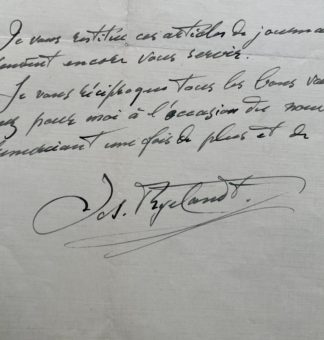 Je vous restitue ces articles de journa
encore vous servir.
Je vous réciproque tous les bons
pour moi à l'occasion du nou
une fois de plus et de
Jos. Ryelandt.